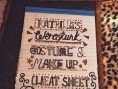 KATHINA'S
Werqshurk
COSTUME &
MAKE UP
CHEAT SHEET